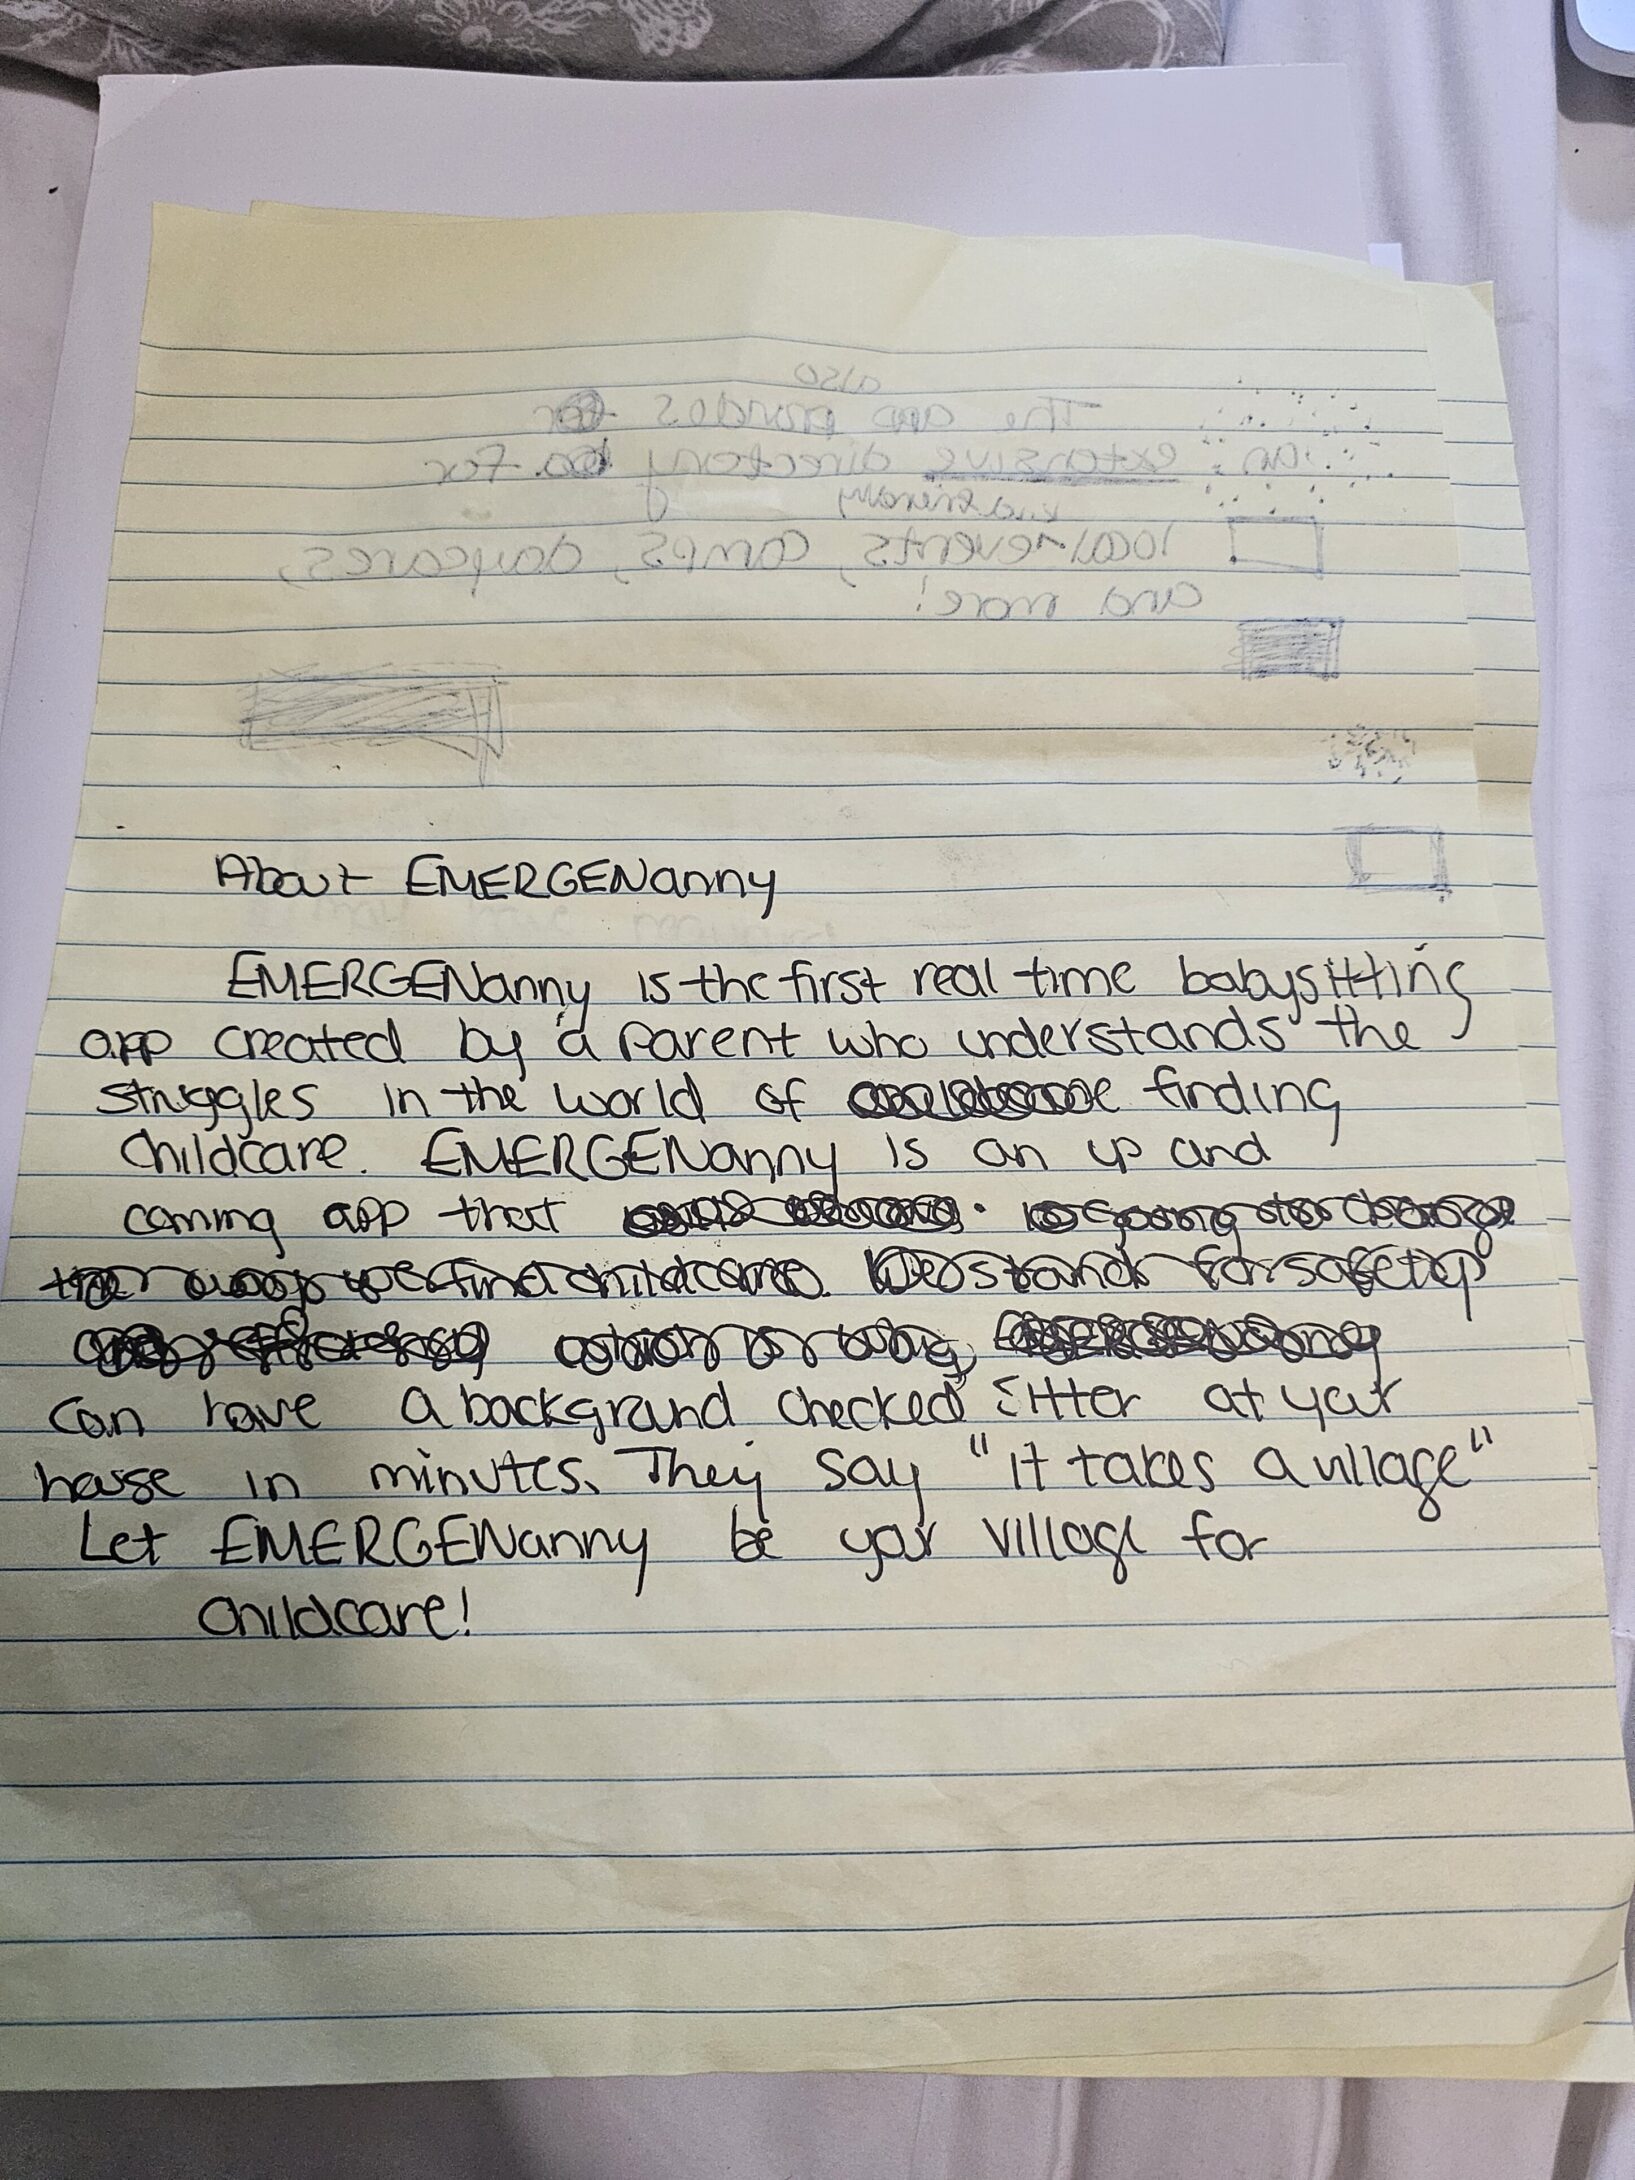 also
The app provides for
an extensive directory for
kid friendly
local events, camps, daycares,
and more!
About EMERGENanny
EMERGENanny is the first real time babysitting
app created by a parent who understands the
struggles in the world of finding
childcare. EMERGENanny is an up and
coming app that is going to change
the way we find childcare. We stand for safety
option is
can have a background checked sitter at your
house in minutes. They say "it takes a village"
Let EMERGENanny be your village for
childcare!